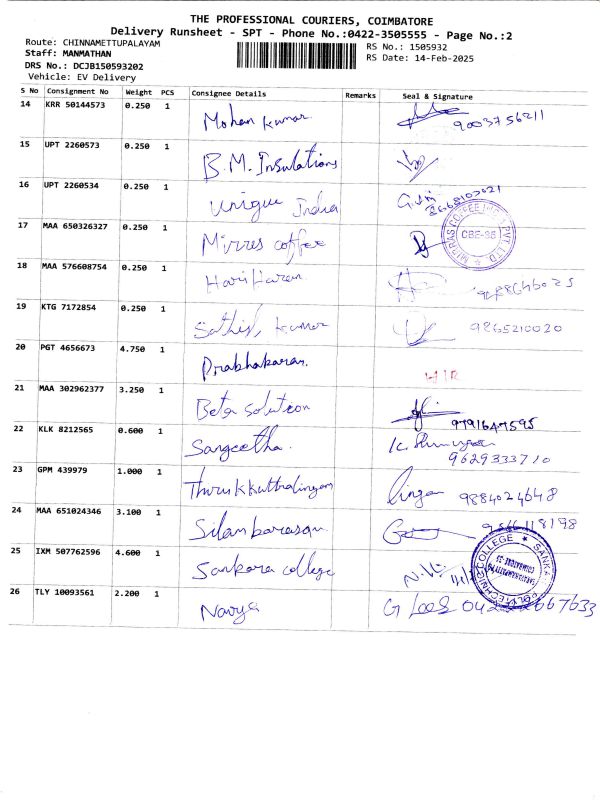 THE PROFESSIONAL COURIERS, COIMBATORE
Delivery Runsheet - SPT - Phone No.:0422-3505555 - Page No.:2
Route: CHINNAMETTUPALAYAM
RS No.: 1505932
Staff: MANMATHAN
RS Date: 14-Feb-2025
DRS No.: DCJB150593202
Vehicle: EV Delivery
S No Consignment No Weight PCS Consignee Details Remarks Seal & Signature
14 KRR 50144573 0.250 1 Mohan Kumar 9003756211
15 UPT 2260573 0.250 1 B.M. Insulations
16 UPT 2260534 0.250 1 Unique India
17 MAA 650326327 0.250 1 Mirres coffee CBE-36
18 MAA 576608754 0.250 1 Hari Haran
19 KTG 7172854 0.250 1 Sathish Kumar 9865210020
20 PGT 4656673 4.750 1 Prabhakaran. HIR
21 MAA 302962377 3.250 1 Beta solution 9791647595
22 KLK 8212565 0.600 1 Sangeetha. 9629333710
23 GPM 439979 1.000 1 Lingam 9884024648
24 MAA 651024346 3.100 1 Silambarasan
25 IXM 507762596 4.600 1 Sankara college
26 TLY 10093561 2.200 1 Navya